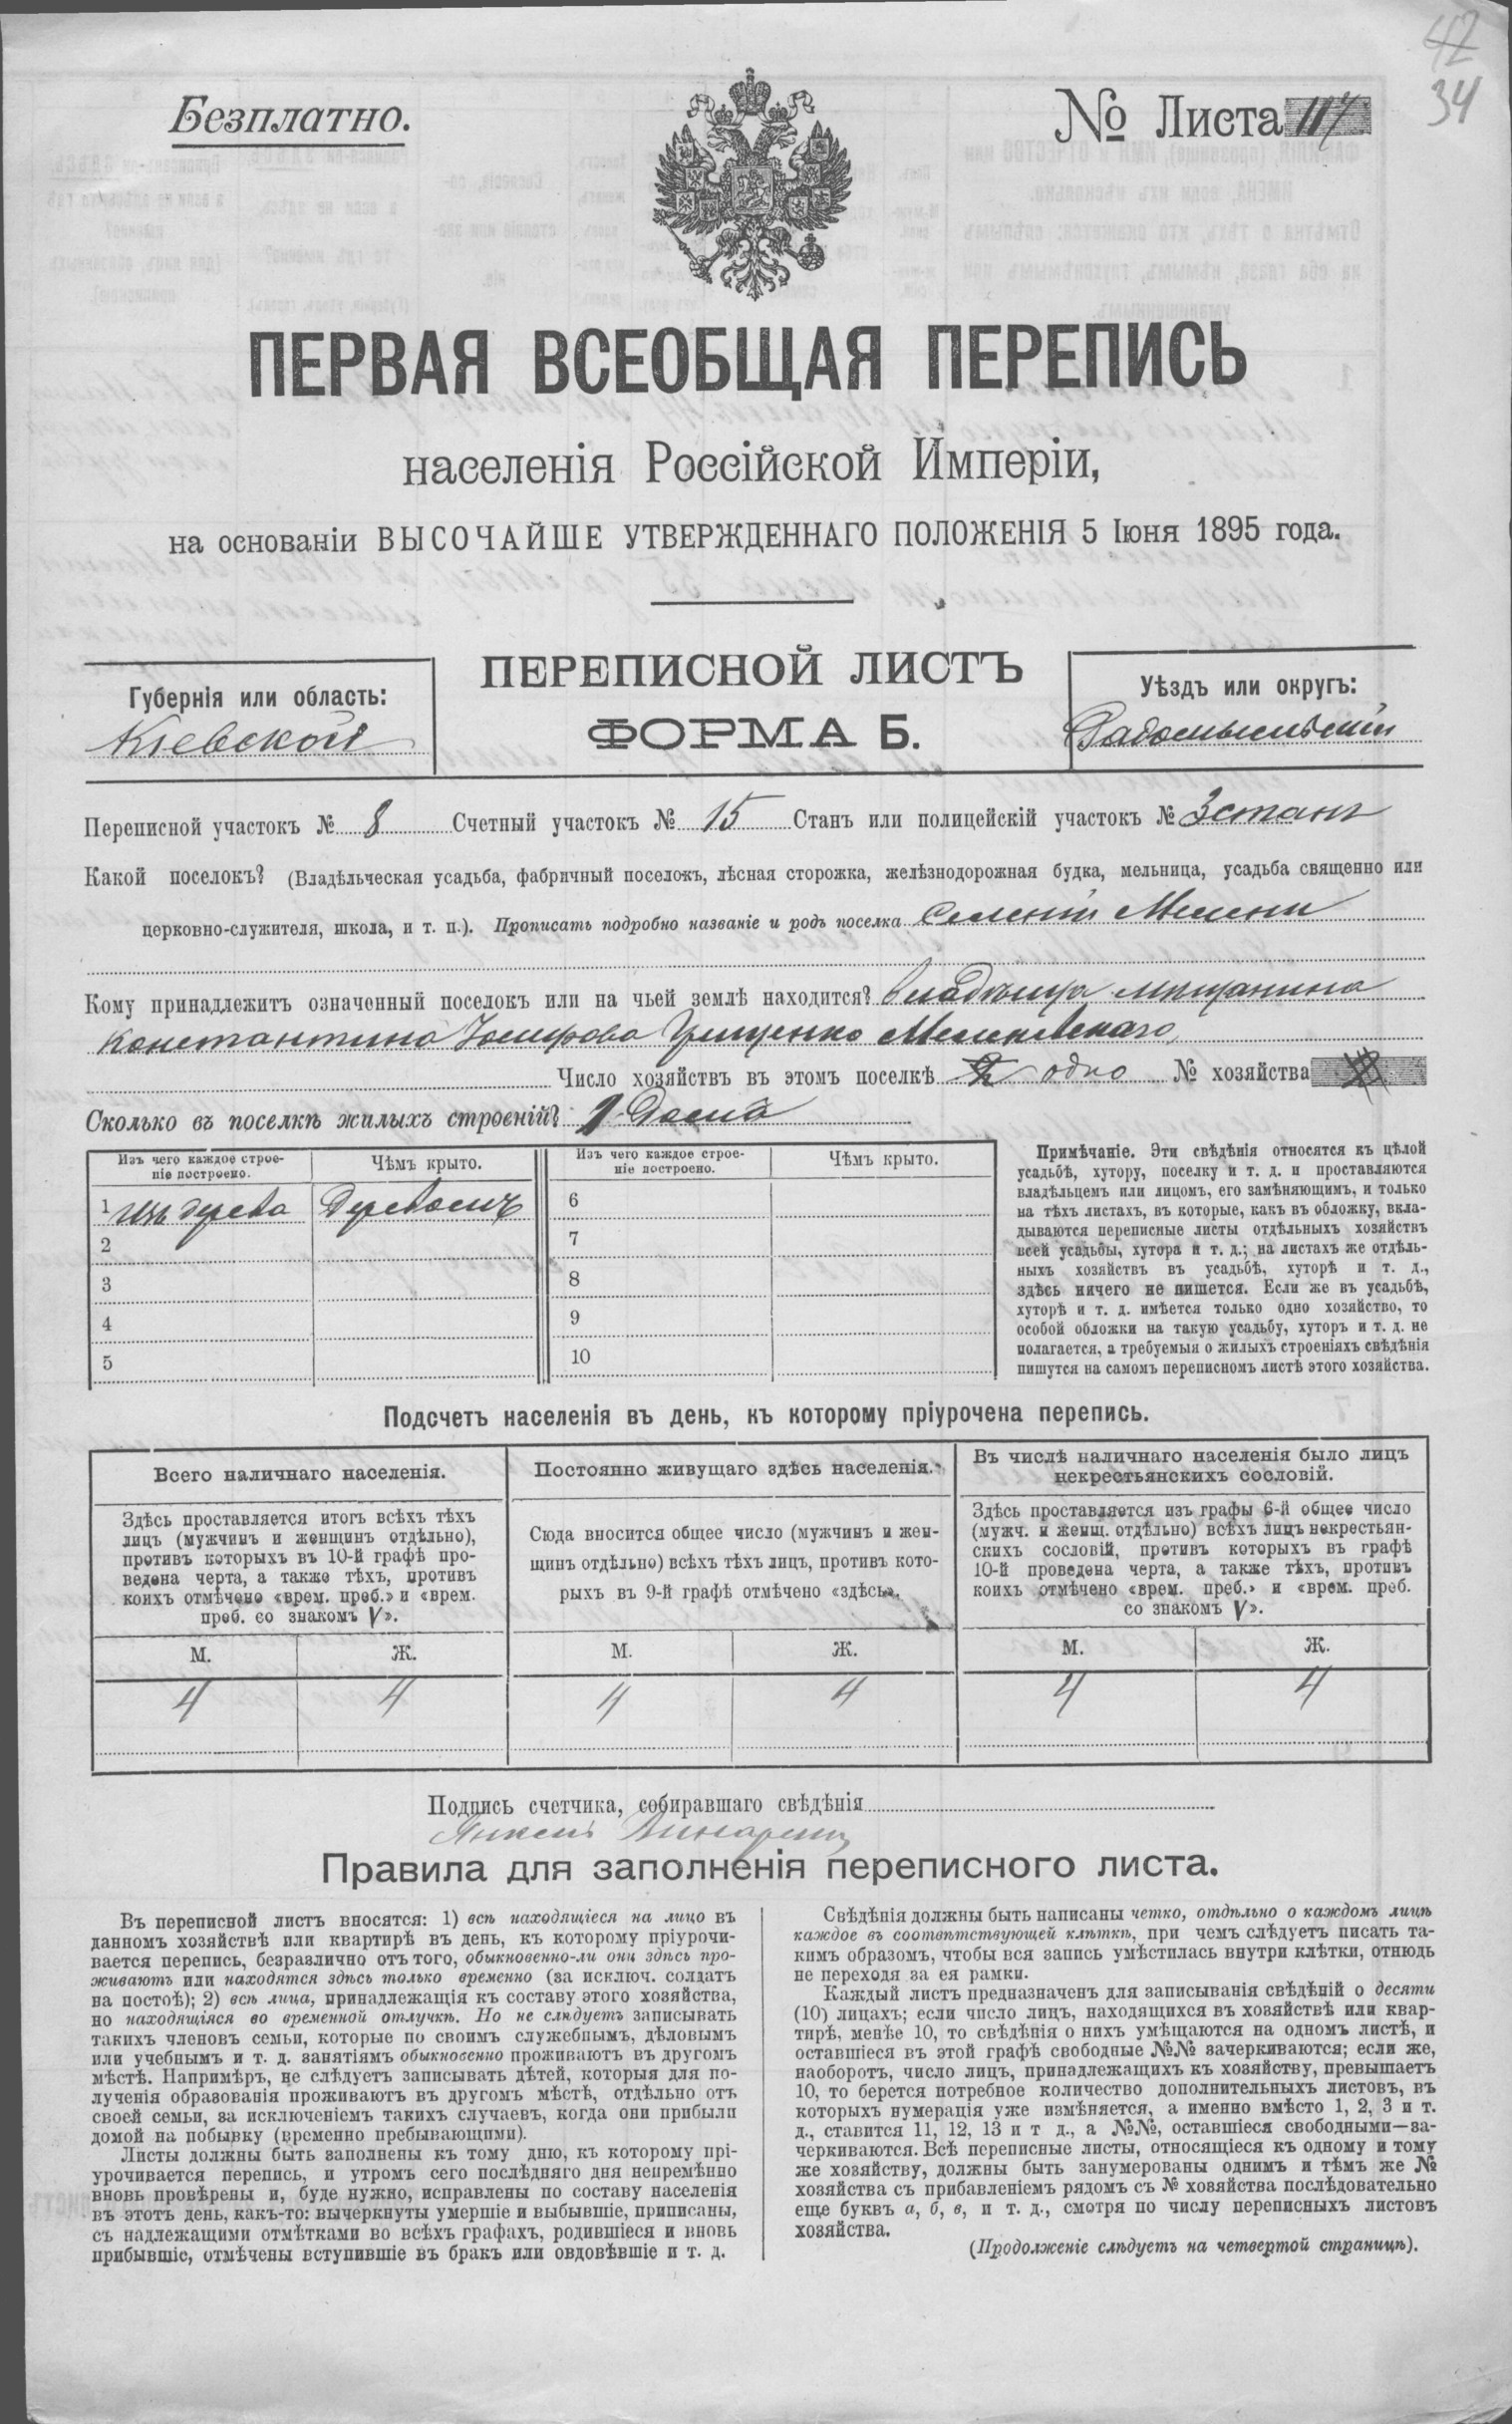 42
34
Безплатно.
№ Листа 117
ПЕРВАЯ ВСЕОБЩАЯ ПЕРЕПИСЬ
населенія Россійской Имперіи,
на основаніи ВЫСОЧАЙШЕ УТВЕРЖДЕННАГО ПОЛОЖЕНІЯ 5 Іюня 1895 года.
ПЕРЕПИСНОЙ ЛИСТЪ
ФОРМА Б.
Губернія или область:
Кіевской
Уѣздъ или округъ:
Радомысльскій
Переписной участокъ № 8 Счетный участокъ № 15 Станъ или полицейскій участокъ № 3 станъ
Какой поселокъ? (Владѣльческая усадьба, фабричный поселокъ, лѣсная сторожка, желѣзнодорожная будка, мельница, усадьба священно или
церковно-служителя, школа, и т. п.). Прописать подробно названіе и родъ поселка Мелени
Кому принадлежитъ означенный поселокъ или на чьей землѣ находится? мѣщанина
Константина Грищенко Мелен
Число хозяйствъ въ этомъ поселкѣ одно № хозяйства
Сколько въ поселкѣ жилыхъ строеній?
Изъ чего каждое строе-
ніе построено.
Чѣмъ крыто.
Изъ чего каждое строе-
ніе построено.
Чѣмъ крыто.
1 изъ дерева Деревомъ 6
2 7
3 8
4 9
5 10
Примѣчаніе. Эти свѣдѣнія относятся къ цѣлой
усадьбѣ, хутору, поселку и т. д. и проставляются
владѣльцемъ или лицомъ, его замѣняющимъ, и только
на тѣхъ листахъ, въ которые, какъ въ обложку, вкла-
дываются переписные листы отдѣльныхъ хозяйствъ
всей усадьбы, хутора и т. д.; на листахъ же отдѣль-
ныхъ хозяйствъ въ усадьбѣ, хуторѣ и т. д.,
здѣсь ничего не пишется. Если же въ усадьбѣ,
хуторѣ и т. д. имѣется только одно хозяйство, то
особой обложки на такую усадьбу, хуторъ и т. д. не
полагается, а требуемыя о жилыхъ строеніяхъ свѣдѣнія
пишутся на самомъ переписномъ листѣ этого хозяйства.
Подсчетъ населенія въ день, къ которому пріурочена перепись.
Всего наличнаго населенія.
Здѣсь проставляется итогъ всѣхъ тѣхъ
лицъ (мужчинъ и женщинъ отдѣльно),
противъ которыхъ въ 10-й графѣ про-
ведена черта, а также тѣхъ, противъ
коихъ отмѣчено «врем. преб.» и «врем.
преб. со знакомъ V».
Постоянно живущаго здѣсь населенія.
Сюда вносится общее число (мужчинъ и жен-
щинъ отдѣльно) всѣхъ тѣхъ лицъ, противъ кото-
рыхъ въ 9-й графѣ отмѣчено «здѣсь».
Въ числѣ наличнаго населенія было лицъ
некрестьянскихъ сословій.
Здѣсь проставляется изъ графы 6-й общее число
(мужч. и женщ. отдѣльно) всѣхъ лицъ некрестьян-
скихъ сословій, противъ которыхъ въ графѣ
10-й проведена черта, а также тѣхъ, противъ
коихъ отмѣчено «врем. преб.» и «врем. преб.
со знакомъ V».
М. Ж. М. Ж. М. Ж.
4 4 4 4 4 4
Подпись счетчика, собиравшаго свѣдѣнія
Правила для заполненія переписного листа.
Въ переписной листъ вносятся: 1) всѣ находящіеся на лицо въ
данномъ хозяйствѣ или квартирѣ въ день, къ которому пріурочи-
вается перепись, безразлично отъ того, обыкновенно-ли они здѣсь про-
живаютъ или находятся здѣсь только временно (за исключ. солдатъ
на постоѣ); 2) всѣ лица, принадлежащія къ составу этого хозяйства,
но находящіяся во временной отлучкѣ. Но не слѣдуетъ записывать
такихъ членовъ семьи, которые по своимъ служебнымъ, дѣловымъ
или учебнымъ и т. д. занятіямъ обыкновенно проживаютъ въ другомъ
мѣстѣ. Напримѣръ, не слѣдуетъ записывать дѣтей, которыя для по-
лученія образованія проживаютъ въ другомъ мѣстѣ, отдѣльно отъ
своей семьи, за исключеніемъ такихъ случаевъ, когда они прибыли
домой на побывку (временно пребывающими).
Листы должны быть заполнены къ тому дню, къ которому прі-
урочивается перепись, и утромъ сего послѣдняго дня непремѣнно
вновь провѣрены и, буде нужно, исправлены по составу населенія
въ этотъ день, какъ-то: вычеркнуты умершіе и выбывшіе, приписаны,
съ надлежащими отмѣтками во всѣхъ графахъ, родившіеся и вновь
прибывшіе, отмѣчены вступившіе въ бракъ или овдовѣвшіе и т. д.
Свѣдѣнія должны быть написаны четко, отдѣльно о каждомъ лицѣ
каждое въ соотвѣтствующей клѣткѣ, при чемъ слѣдуетъ писать та-
кимъ образомъ, чтобы вся запись умѣстилась внутри клѣтки, отнюдь
не переходя за ея рамки.
Каждый листъ предназначенъ для записыванія свѣдѣній о десяти
(10) лицахъ; если число лицъ, находящихся въ хозяйствѣ или квар-
тирѣ, менѣе 10, то свѣдѣнія о нихъ умѣщаются на одномъ листѣ, и
оставшіеся въ этой графѣ свободные №№ зачеркиваются; если же,
наоборотъ, число лицъ, принадлежащихъ къ хозяйству, превышаетъ
10, то берется потребное количество дополнительныхъ листовъ, въ
которыхъ нумерація уже измѣняется, а именно вмѣсто 1, 2, 3 и т.
д., ставится 11, 12, 13 и т д., а №№, оставшіеся свободными—за-
черкиваются. Всѣ переписные листы, относящіеся къ одному и тому
же хозяйству, должны быть занумерованы однимъ и тѣмъ же №
хозяйства съ прибавленіемъ рядомъ съ № хозяйства послѣдовательно
еще буквъ а, б, в, и т. д., смотря по числу переписныхъ листовъ
хозяйства.
(Продолженіе слѣдуетъ на четвертой страницѣ).